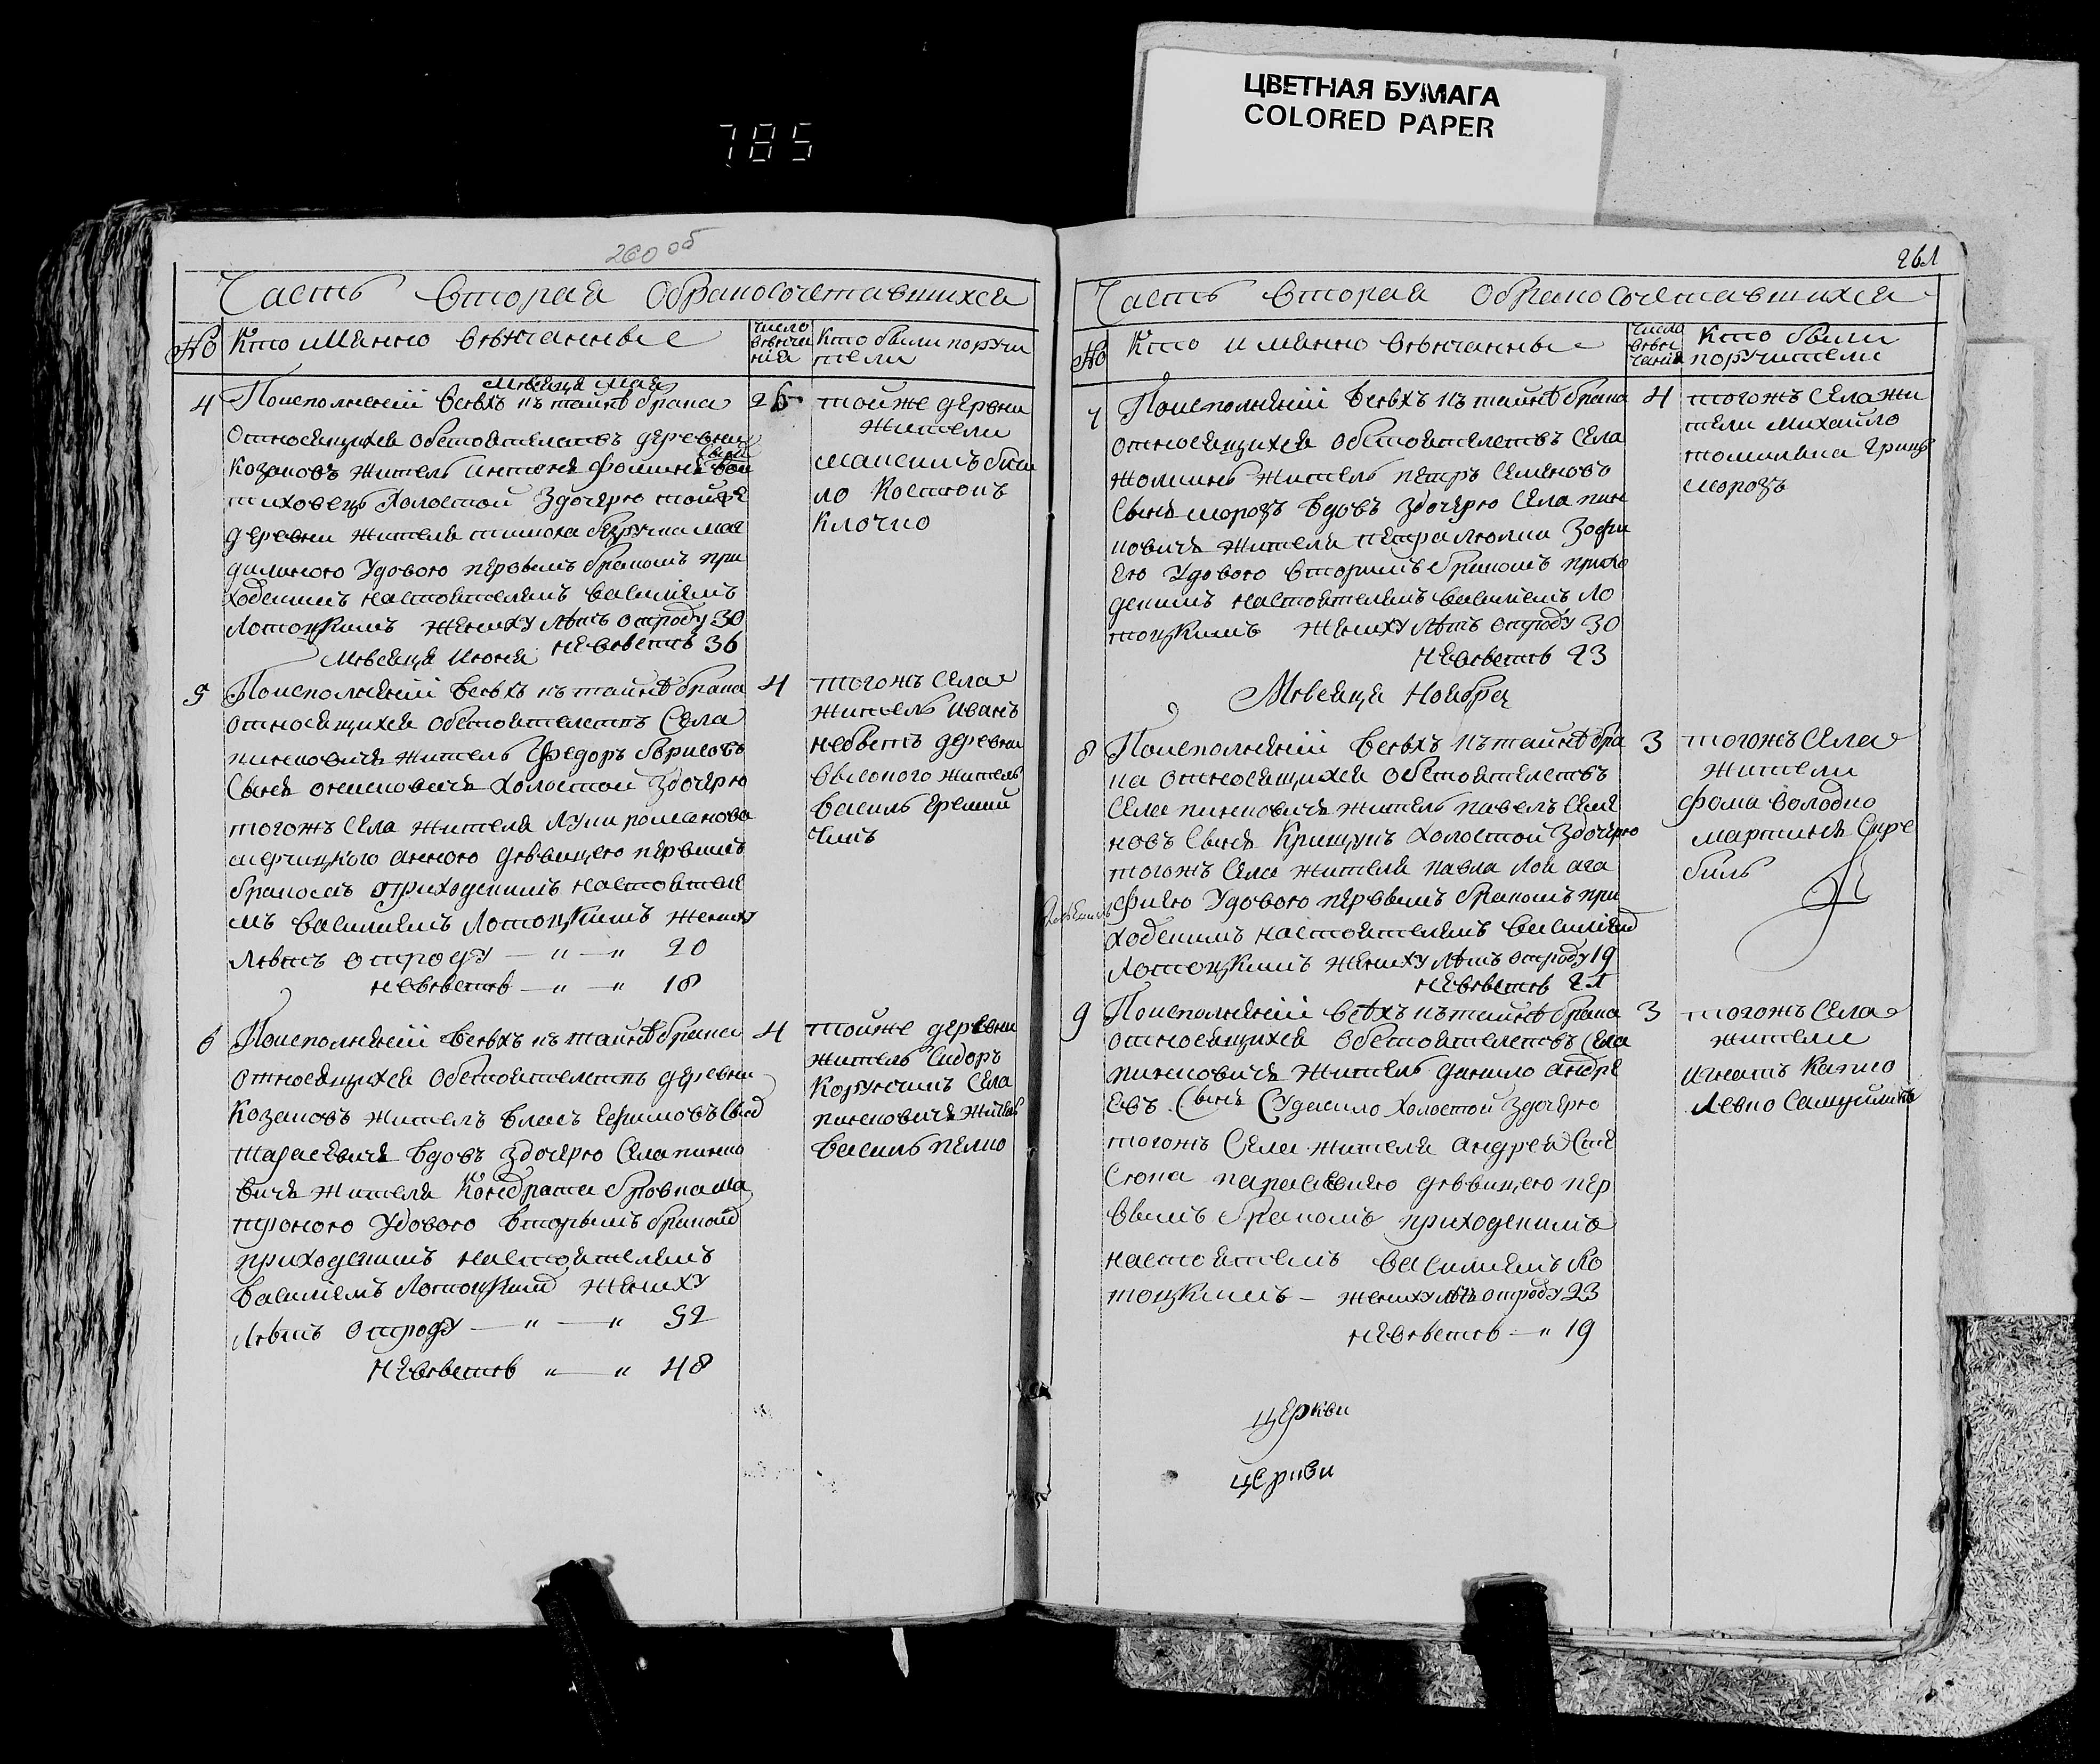 ЦВЕТНАЯ БУМАГА
COLORED PAPER
785
260 об
Часть вторая обракосочетавшихся
№
Кто имянно вѣнчанные
Число вѣнча ния
Кто были поручи
тели
Мѣсяца мая
4
Поисполнении всѣхъ къ тайнѣ брака
относящихся обстоятелствъ деревни
козаковъ житель антоня фомина сынъ
тиховецъ холостой здочерю тойже
деревни жителя
далиною Удовою первымъ бракомъ при
ходскимъ настоятелямъ василиемъ
Лотоцкимъ жениху лѣтъ отроду 30
невѣстѣ 36
26
тойже деревни
жители
Костюкъ
клочко
Мѣсяца Июня
5
Поисполнении всѣхъ къ тайнѣ брака
относящихся обстоятелствъ Села
пинковичъ житель Федоръ борисовъ
Сынъ онисковичъ холостой здочерю
тогожъ Села жителя Луки романова
анною дѣвицею первымъ
бракомъ приходскимъ настоятеле
мъ василиемъ Лотоцкимъ жениху
лѣтъ отроду — „ — „ 20
невѣстѣ — „ — „ 18
4
тогожъ Села
житель иванъ
деревни
высокого житель
василь еремий
чикъ
6
Поисполнении всѣхъ къ тайнѣ брака
относящихся обстоятелствъ деревни
Козаковъ житель власъ Ефимовъ Сынъ
тарасевичъ вдовъ здочерю Села пинко
вичъ жителя Кондрата бровка ма
троною Удовою вторымъ бракомъ
приходскимъ настоятелямъ
василиемъ Лотоцкимъ жениху
лѣтъ отроду — „ — „ 52
невѣстѣ „ — „ 48
4
тойже деревни
житель Сидоръ
Села
пинковичъ житель
василь велко
261
Часть вторая обракосочетавшихся
№
Кто имянно вѣнчанные
Число вѣн чания
Кто были
поручители
7
Поисполнении всѣхъ къ тайнѣ брака
относящихся обстоятелствъ Села
житель петръ Семеновъ
Сынъ морозъ вдовъ здочерю Села пин
ковичъ жителя петра зофи
ею Удовою вторымъ бракомъ прихо
дскимъ настоятелямъ василиемъ Ло
тоцкимъ жениху лѣтъ отроду 30
невѣстѣ 23
4
тогожъ Села жи
тели Михайло
грицъ
морозъ
Мѣсяца Ноября
8
Поисполнении всѣхъ къ тайнѣ бра
ка относящихся обстоятелствъ
Села пинковичъ житель павелъ Семе
новъ Сынъ Крищукъ холостой здочерю
тогожъ Села жителя павла ага
фиею Удовою первымъ бракомъ при
ходскимъ настоятелямъ василиемъ
Лотоцкимъ жениху лѣтъ отроду 19
невѣстѣ 21
3
тогожъ Села
жители
фома володко
мартинъ
9
Поисполнении всѣхъ къ тайнѣ брака
относящихся обстоятелствъ Села
пинковичъ житель данило андре
евъ Сынъ холостой здочерю
тогожъ Села жителя андрея
параскевиею дѣвицею пер
вымъ бракомъ приходскимъ
настоятелемъ василиемъ Ло
тоцкимъ — жениху лѣтъ отроду 23
невѣстѣ — „ 19
3
тогожъ Села
жители
игнатъ
Левко
церкви
церкви